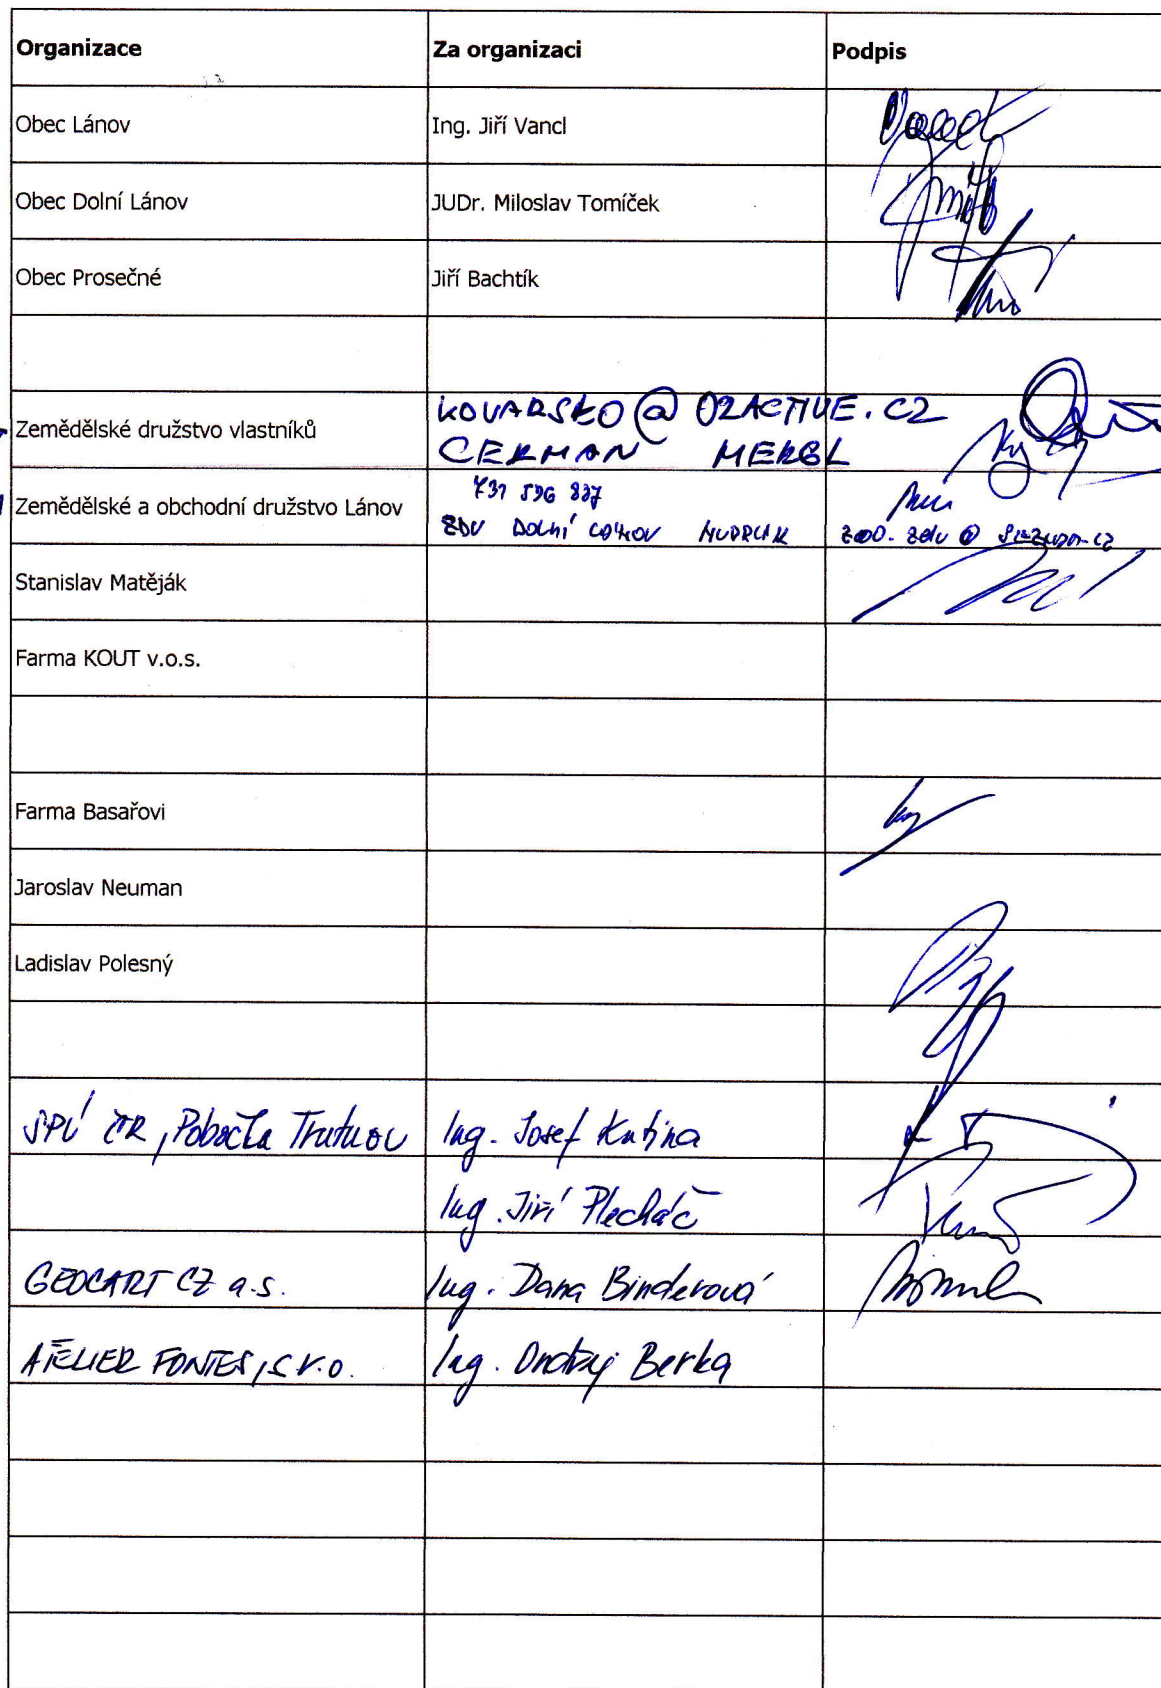 Organizace Za organizaci Podpis
Obec Lánov Ing. Jiří Vancl
Obec Dolní Lánov JUDr. Miloslav Tomíček
Obec Prosečné Jiří Bachtík
KOVARSKO@O2ACTIVE.CZ
Zemědělské družstvo vlastníků
CERMAN MERGL
731 596 837
Zemědělské a obchodní družstvo Lánov
ZDV DOLNÍ
Stanislav Matěják
Farma KOUT v.o.s.
Farma Basařovi
Jaroslav Neuman
Ladislav Polesný
SPÚ ČR, Pobočka Trutnov Ing. Josef Kutina
Ing. Jiří Plecháč
GEOCART CZ a.s. Ing. Dana Binderová
ATELIER FONTES, s.r.o. Ing. Ondřej Berka